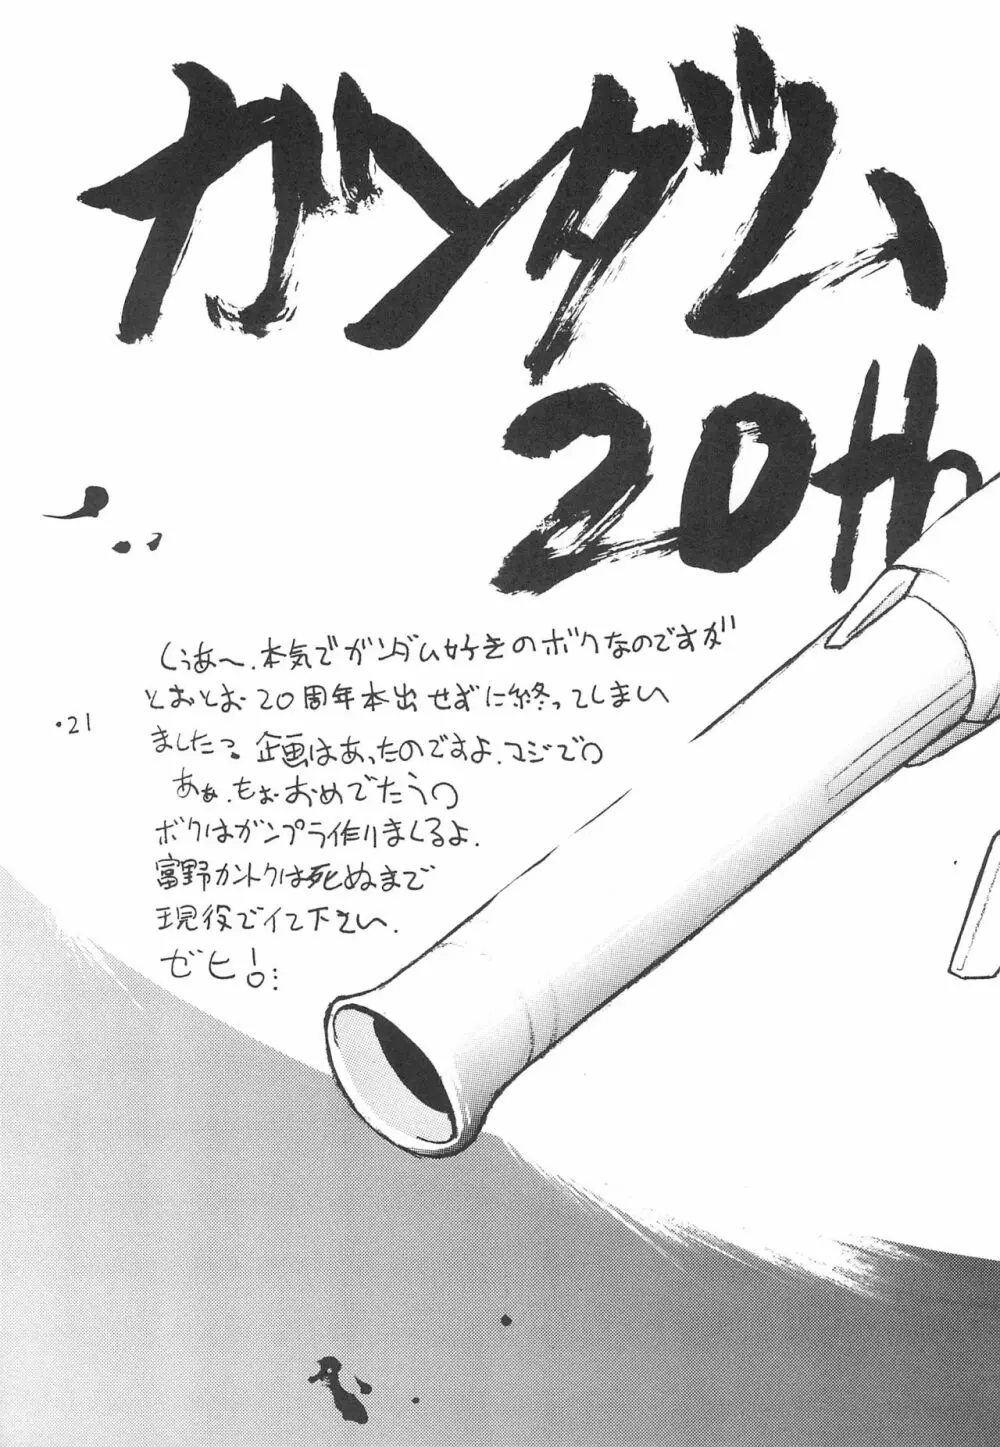 ガンダム
20th
くぅあ〜、本気でガンダム好きのボクなのですが
とおとお20周年本出せずに終ってしまい
ました。企画はあったのですよ、マジで。
あぁ、もぉおめでたう。
ボクはガンプラ作りまくるよ。
富野カントクは死ぬまで
現役でイて下さい、
ゼヒ!…
・21